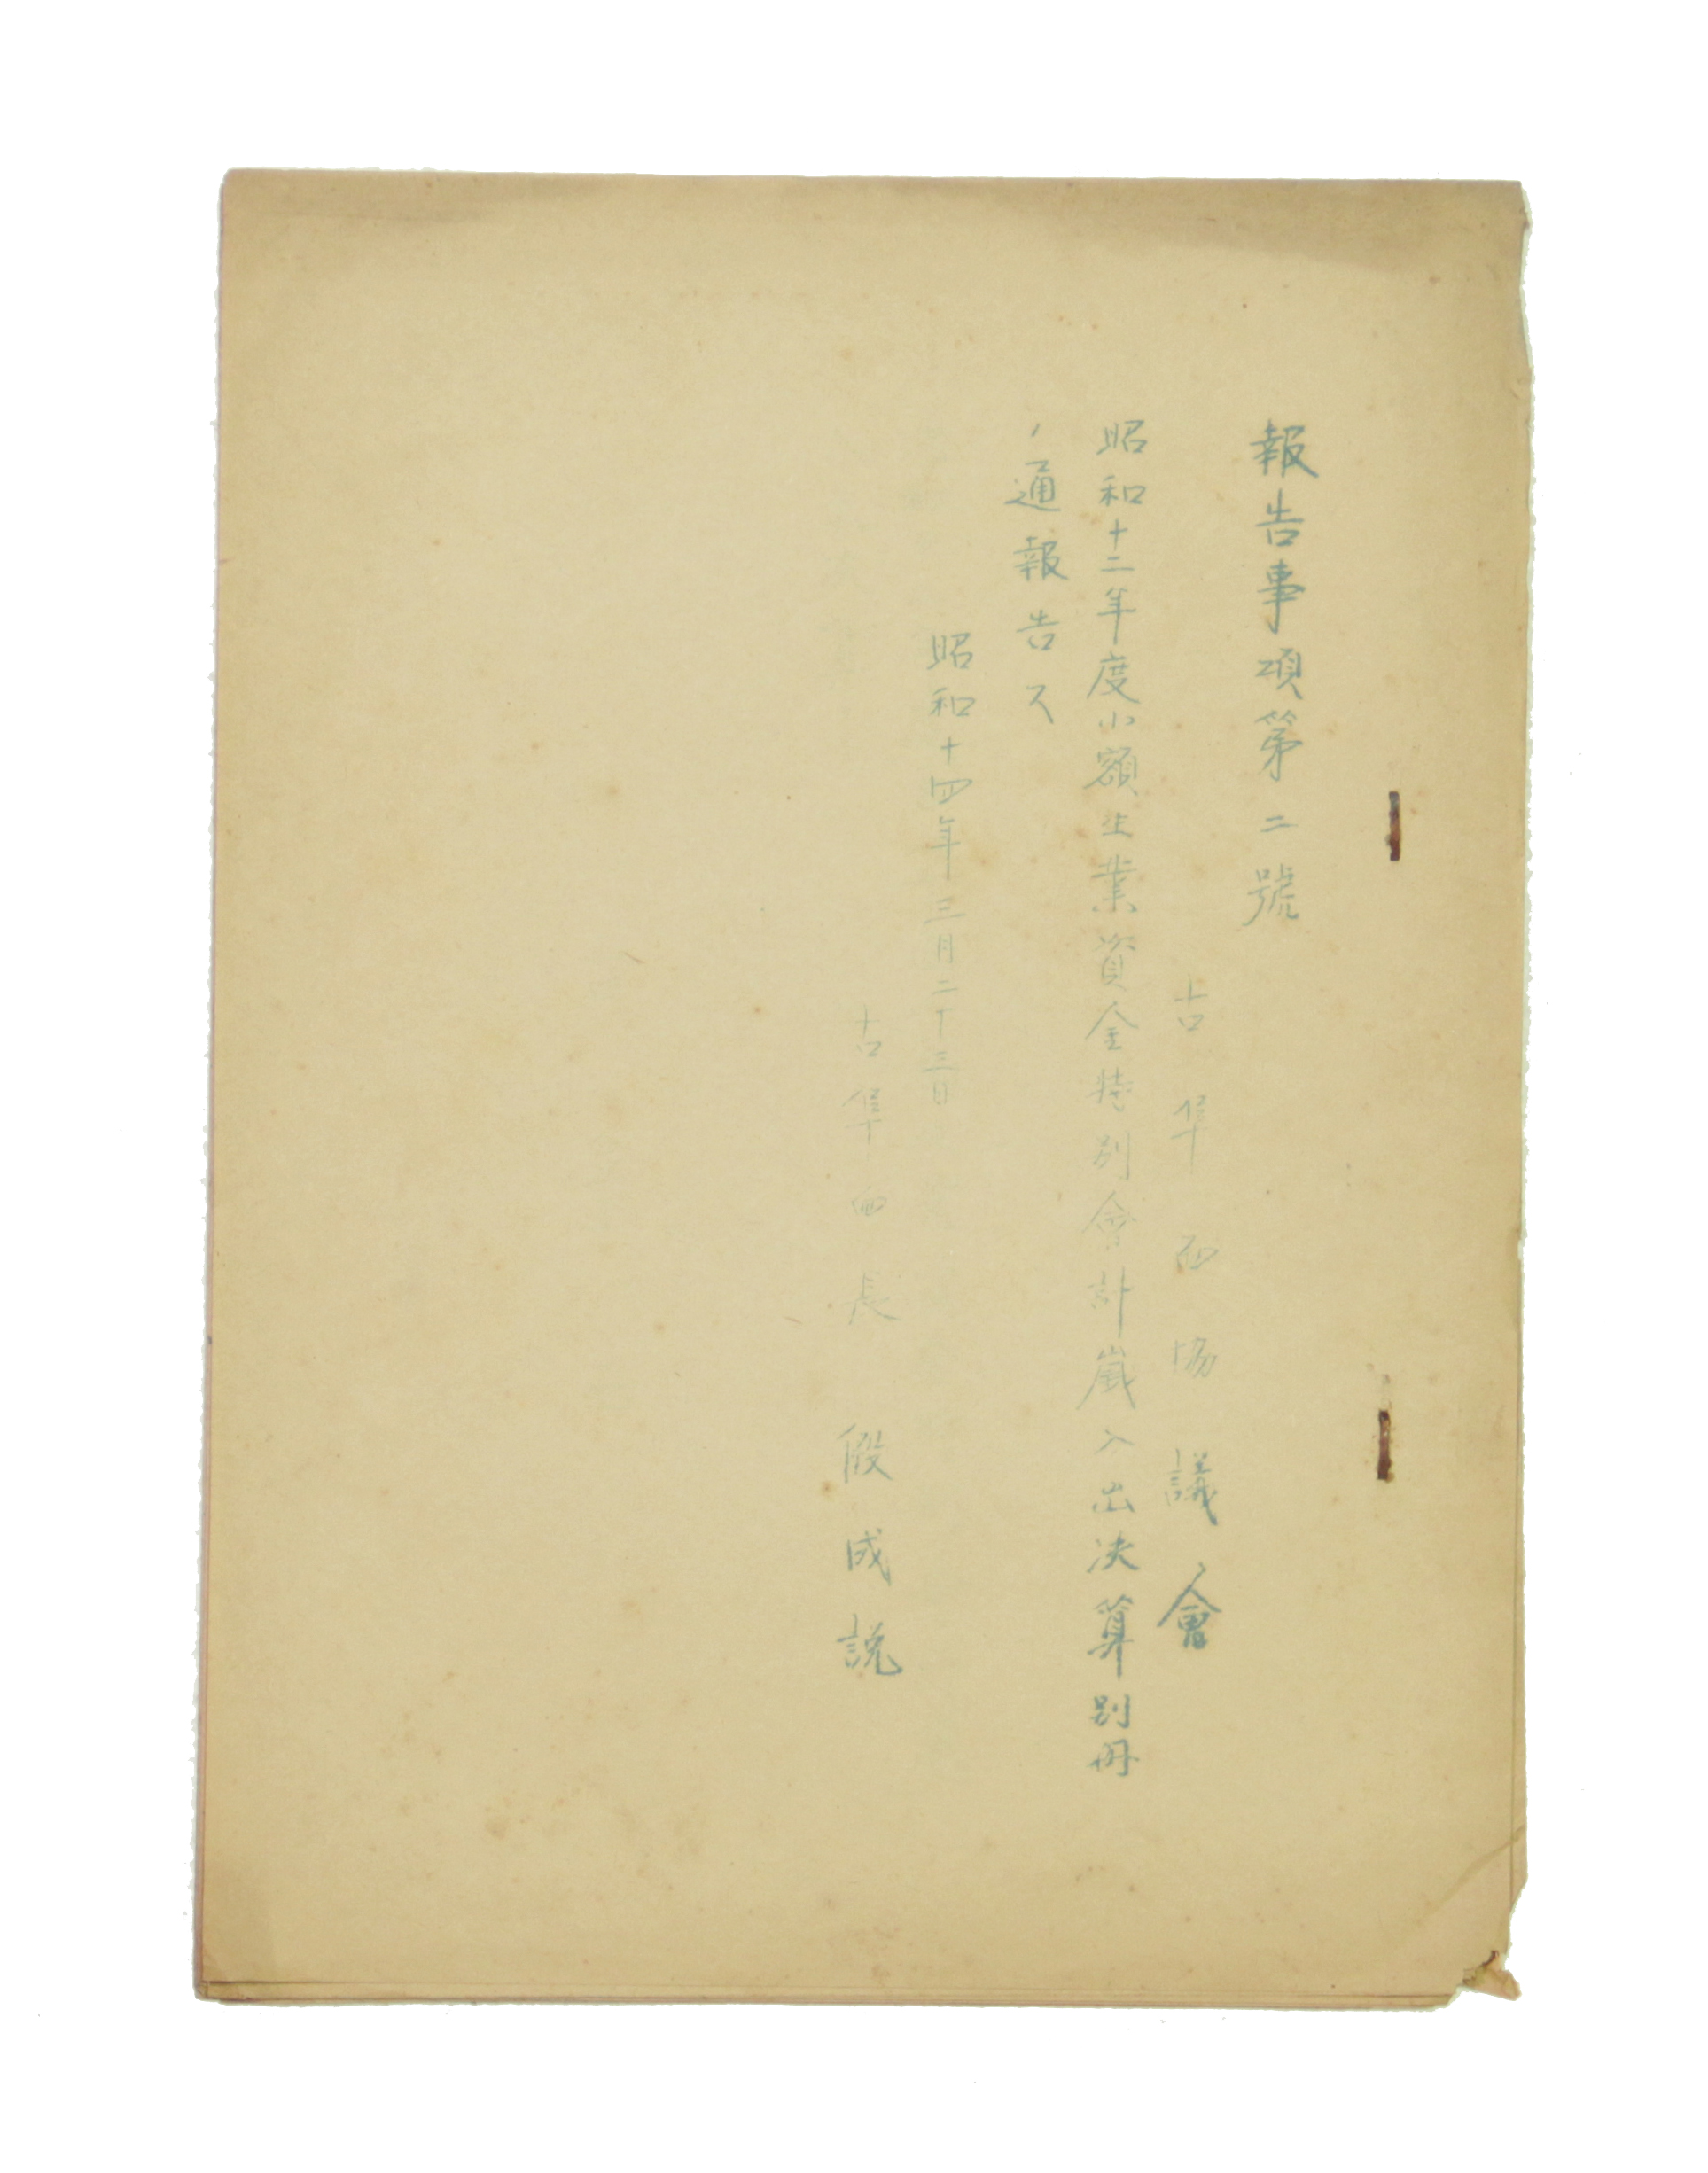 報告事項第二號
古隼面協議會
昭和十二年度小額生業資金特別會計歳入出決算別冊
ノ通報告ス
昭和十四年三月二十三日
古隼面長 假成説